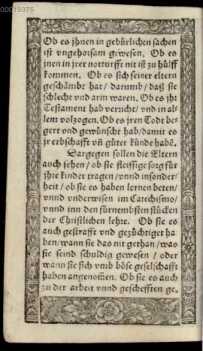 Ob es jhnen in gebürlichen sachen
ist vngehorsam gewesen. Ob es
jnen in jrer notturfft nit ist zu hülff
kommen. Ob es sich seiner eltern
geschämbt hat / darumb / daß sie
schlecht vnd arm waren. Ob es jhr
Testament hab veracht / vnd in al
lem volzogen. Ob es jren Todt be
gert vnd gewünscht hab / damit es
jr erbschafft vn̄ güter künde habē.
Dargegen sollen die Eltern
auch sehen / ob sie fleissige sorg für
jhre kinder tragen / vnnd insonder/
heit / ob sie es haben lernen beten /
vnnd vnderwisen im Catechismo /
vnnd inn den fürnembsten stücken
der Christlichen lehre. Ob sie es
auch gestrafft vnd gezüchtiget ha
ben / wann sie das nit gethan / was
sie seind schuldig gewesen / oder
wann sie sich vmb böse geselschafft
haben angenommen. Ob sie es auch
zu der arbeit vnnd geschefften ge,